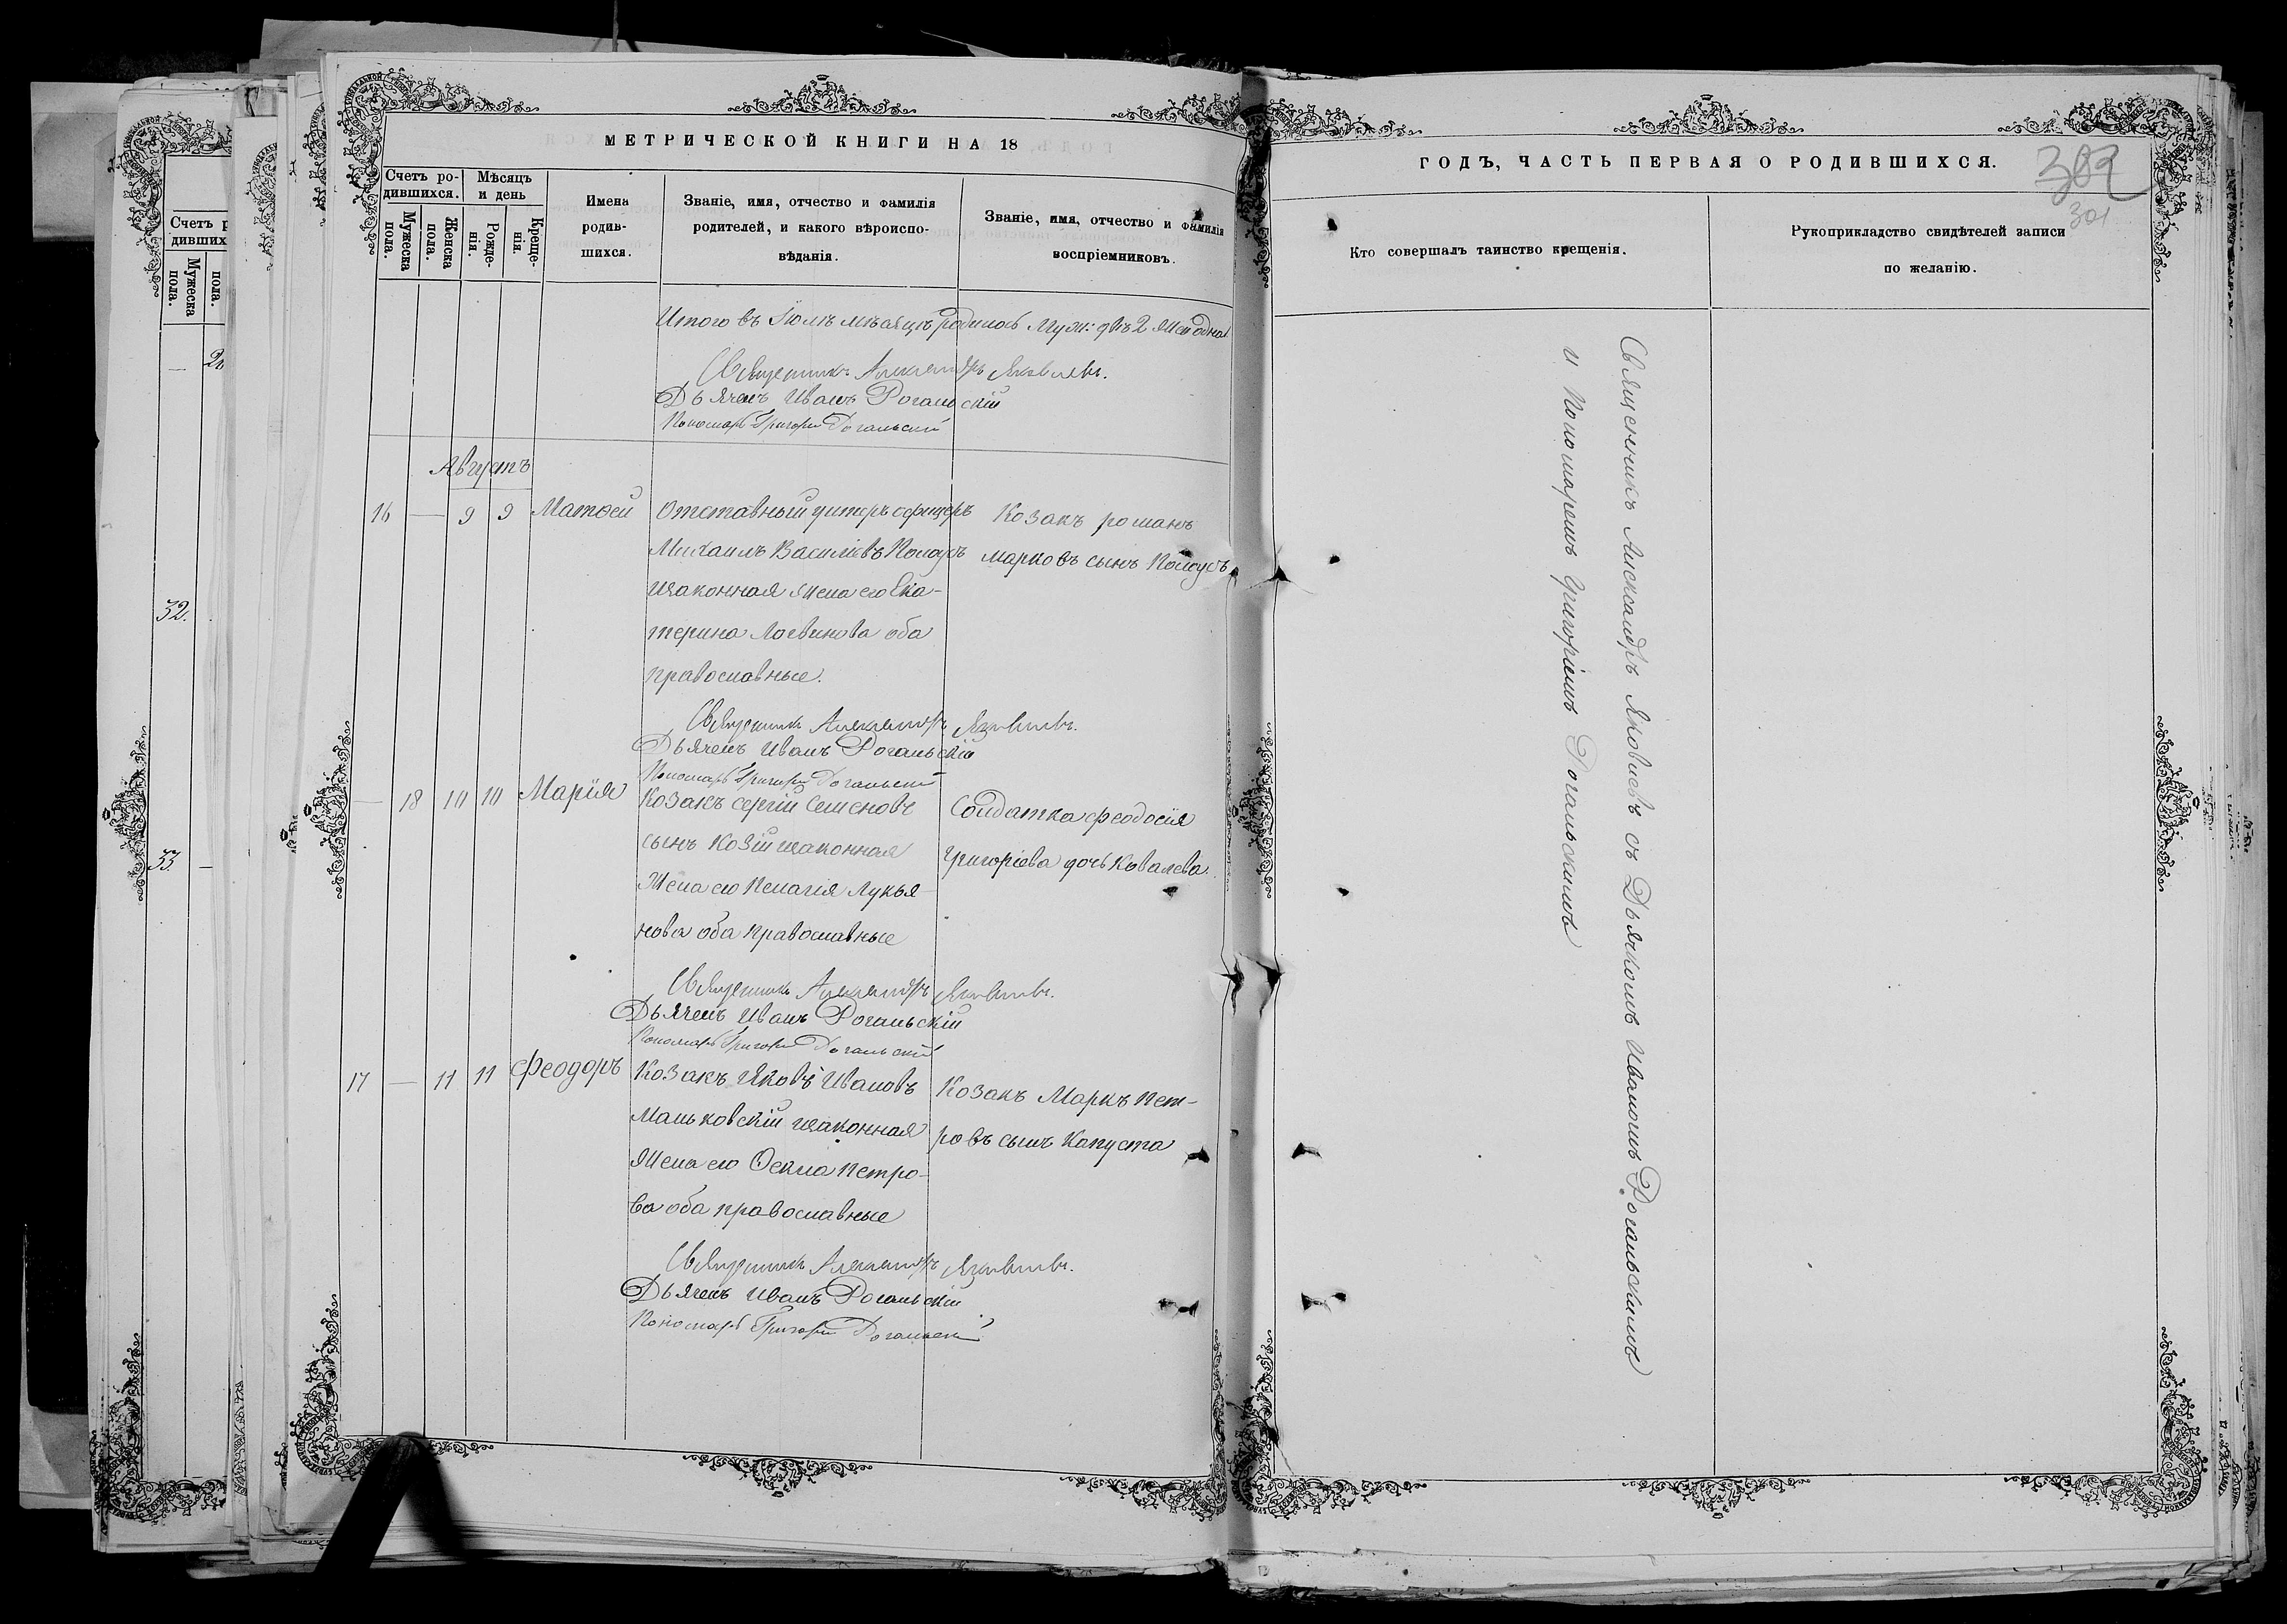 МЕТРИЧЕСКОЙ КНИГИ НА 18
Счетъ ро-
дившихся.
Мѣсяцъ
и день
Мужеска
пола.
Женска
пола.
Рожде-
нія.
Креще-
нія.
Имена
родив-
шихся.
Званіе, имя, отчество и фамилія
родителей, и какого вѣроиспо-
вѣданія.
Званіе, имя, отчество и фамилія
воспріемниковъ.
Итого въ Іюлѣ мѣсяцѣ родилось Муж: двѣ 2 Жен одна
Священникъ Александръ Яковлевъ.
Дьячекъ Иванъ Рогальскій
Пономарь Григорій Рогальскій
Августъ
16 — 9 9 Матѳей
Отставный унтеръ офицеръ
Михаилъ Василіевъ
изаконная жена его Ека-
терина Логвинова оба
православные.
Козакъ романъ
марковъ сынъ
Священникъ Александръ Яковлевъ.
Дьячекъ Иванъ Рогальскій
Пономарь Григорій Рогальскій
— 18 10 10 Марія
Козакъ сергій Семеновъ
сынъ Козій изаконная
Жена его Пелагія Лукья-
нова оба православные
Солдатка феодосія
григоріева дочь Ковалева.
Священникъ Александръ Яковлевъ.
Дьячекъ Иванъ Рогальскій
Пономарь Григорій Рогальскій
17 — 11 11 Феодоръ
Козакъ Яковъ Ивановъ
Маньковскій изаконная
Жена его Ѳекла петро-
ва оба православные
Козакъ Маркъ пет-
ровъ сынъ Капуста
Священникъ Александръ Яковлевъ.
Дьячекъ Иванъ Рогальскій
Пономарь Григорій Рогальскій
ГОДЪ, ЧАСТЬ ПЕРВАЯ О РОДИВШИХСЯ.
302
301
Кто совершалъ таинство крещенія.
Рукоприкладство свидѣтелей записи
по желанію.
Священникъ Александръ Яковлевъ съ Дьячкомъ Иваномъ Рогальскимъ
и Пономаремъ Григоріемъ Рогальскимъ
Счетъ р
дивших
Мужеска
пола.
пола.
32.
33.